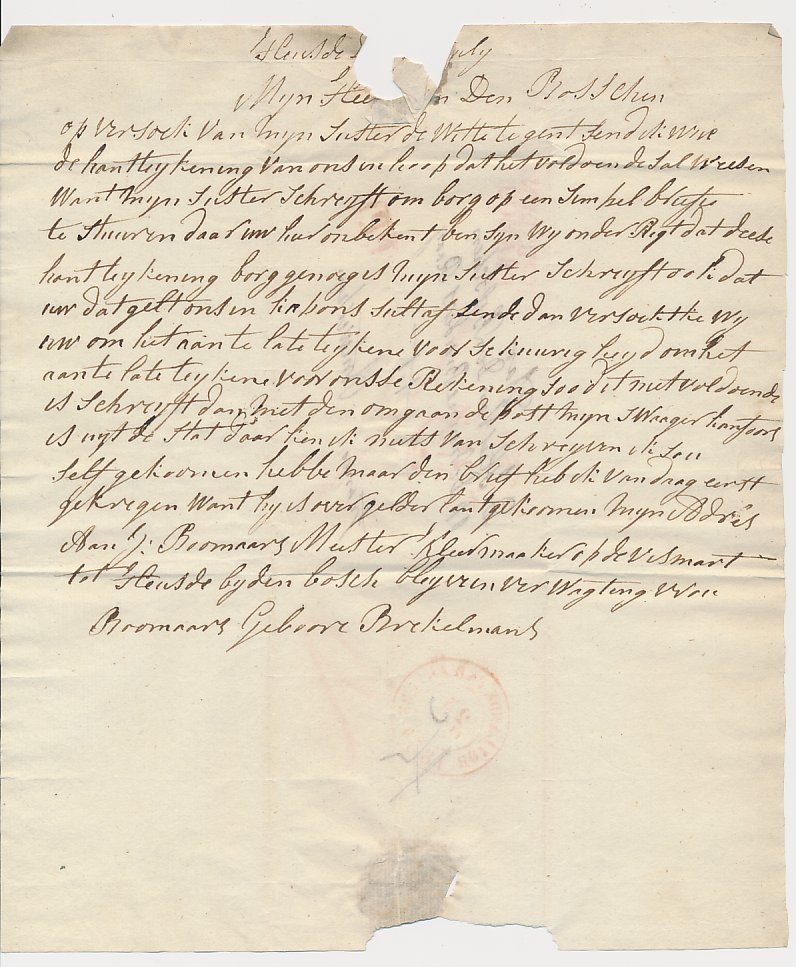 Heusde July
Mijn Hee n Den Bosschen
op versoek van mijn Suster de Witte te gent Send ik uwe
de hantteykening van ons in hoop dat het voldoende Sal weesen
want mijn Suster Schreyft om borg op een Simpel briefje
te Stuuren daar uw hier onbekent ben Syn wy onder Rigt dat deese
hantteykening borg genoeg is mijn Suster Schreyft ook dat
uw dat gelt ons in kopons Sult af Sende dan versoekke wy
uw om het aan te late teykene voor Sekuureg heyd om het
aan te late teykene voor onsse Rekening Soo dit niet voldoende
is Schreyft dan met den omgaande post mijn Swaager
is uyt de Stat daar ken ik niets van Schreyven ik Sou
Self gekoomen hebbe maar den brief heb ik vandaag eerst
gekregen want hy is over gelderlant gekoomen mijn Adres
Aan J: Boomaars Meester Kleermaaker op de vismart
tot Heusde by den bosch bleyve in verwagting vrou
Boomaars Geboore Brekelmans